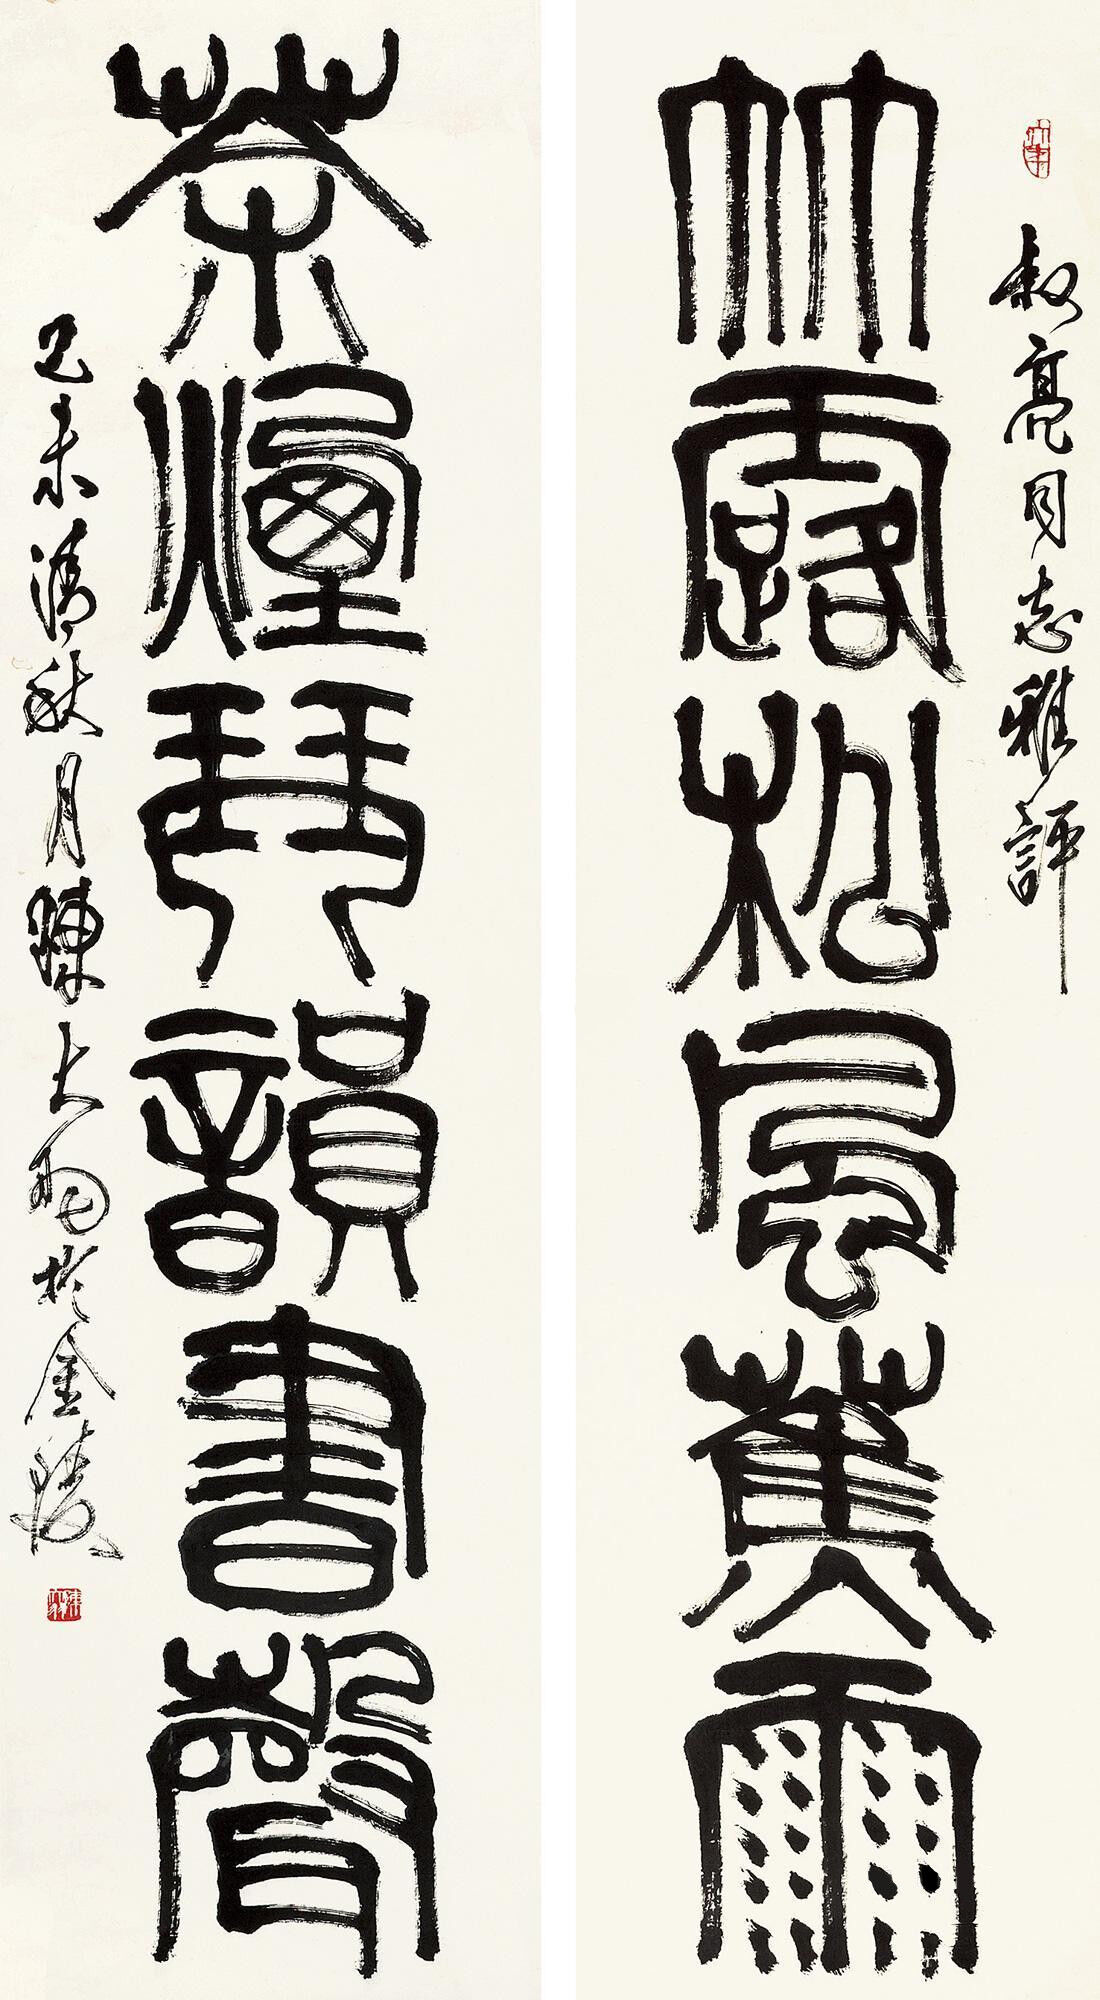 叔亮同志雅評
竹露松風蕉雨
茶煙琴韻書聲
己未清秋月陳大羽於金陵